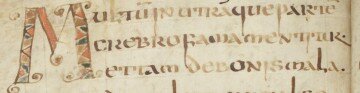 MULTŪ IN UTRAQUE PARTE
CREBRO FAMA MENTITUR
ET TAM DE BONIS MALA.